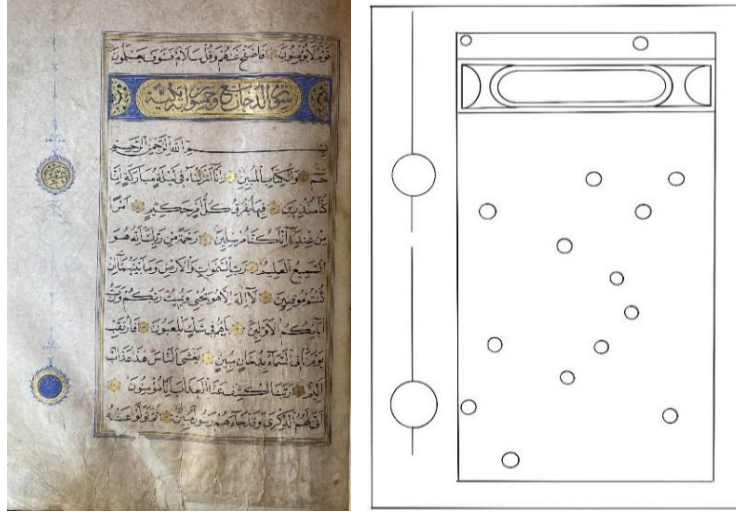 قَوْمٌ لَا يُؤْمِنُونَ فَاصْفَحْ عَنْهُمْ وَقُلْ سَلَامٌ فَسَوْفَ يَعْلَمُونَ
سورة الدخان وخمسون اية مكية
بِسْمِ اللَّهِ الرَّحْمَنِ الرَّحِيمِ
حم وَالْكِتَابِ الْمُبِينِ إِنَّا أَنْزَلْنَاهُ فِي لَيْلَةٍ مُبَارَكَةٍ إِنَّا
كُنَّا مُنْذِرِينَ فِيهَا يُفْرَقُ كُلُّ أَمْرٍ حَكِيمٍ أَمْرًا
مِنْ عِنْدِنَا إِنَّا كُنَّا مُرْسِلِينَ رَحْمَةً مِنْ رَبِّكَ إِنَّهُ هُوَ
السَّمِيعُ الْعَلِيمُ رَبِّ السَّمَوَاتِ وَالْأَرْضِ وَمَا بَيْنَهُمَا إِنْ
كُنْتُمْ مُوقِنِينَ لَا إِلَهَ إِلَّا هُوَ يُحْيِي وَيُمِيتُ رَبُّكُمْ وَرَبُّ
آبَائِكُمُ الْأَوَّلِينَ بَلْ هُمْ فِي شَكٍّ يَلْعَبُونَ فَارْتَقِبْ
يَوْمَ تَأْتِي السَّمَاءُ بِدُخَانٍ مُبِينٍ يَغْشَى النَّاسَ هَذَا عَذَابٌ
أَلِيمٌ رَبَّنَا اكْشِفْ عَنَّا الْعَذَابَ إِنَّا مُؤْمِنُونَ
أَنَّى لَهُمُ الذِّكْرَى وَقَدْ جَاءَهُمْ رَسُولٌ مُبِينٌ ثُمَّ تَوَلَّوْا عَنْهُ